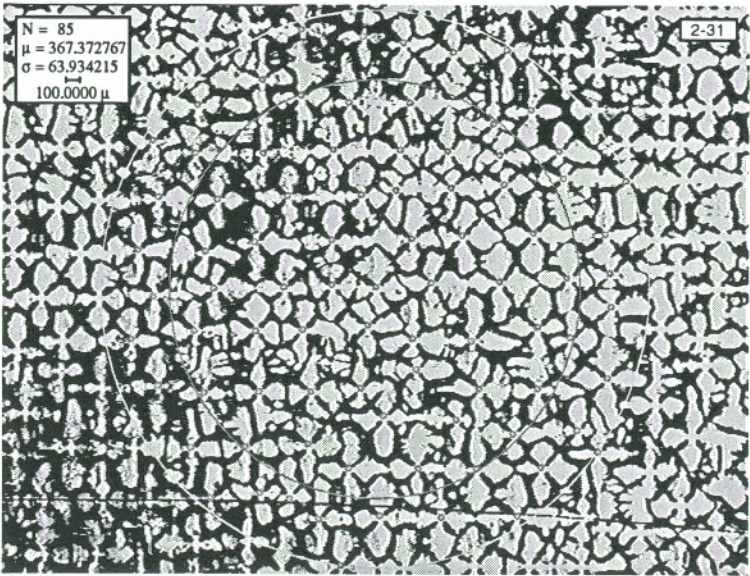 N = 85
μ = 367.372767
σ = 63.934215
100.0000 μ
2-31